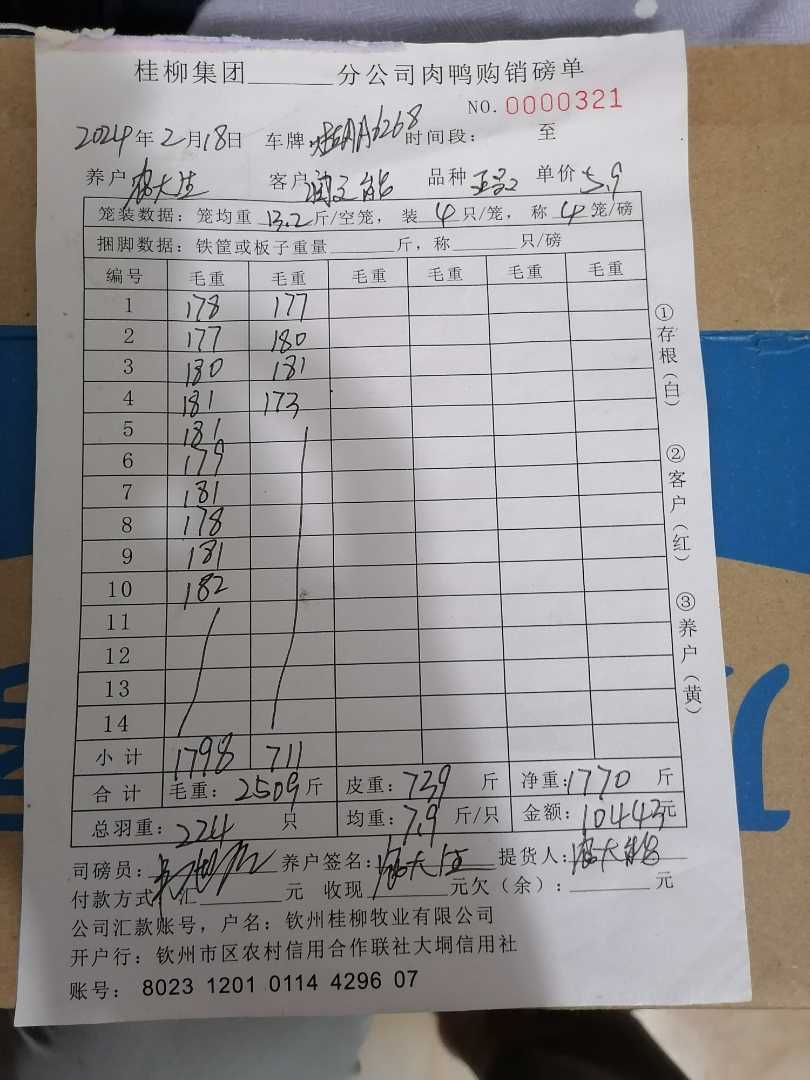 桂柳集团______分公司肉鸭购销磅单
NO. 0000321
2024年2月18日 车牌 A6268 时间段: 至
养户 大生 客户 能 品种 单价 5.9
笼装数据: 笼均重 13.2 斤/空笼, 装 4 只/笼, 称 4 笼/磅
捆脚数据: 铁筐或板子重量______斤, 称______只/磅
编号 毛重 毛重 毛重 毛重 毛重 毛重
1 178 177
2 177 180
3 180 181
4 181 173
5 181
6 179
7 181
8 178
9 181
10 182
11
12
13
14
小计 1798 711
合计 毛重: 2509 斤 皮重: 739 斤 净重: 1770 斤
总羽重: 224 只 均重: 7.9 斤/只 金额: 10443元
司磅员: 养户签名: 大 提货人: 大能
付款方式: 汇______元 收现______元欠(余): ______元
公司汇款账号, 户名: 钦州桂柳牧业有限公司
开户行: 钦州市区农村信用合作联社大垌信用社
账号: 8023 1201 0114 4296 07
①存根(白)
②客户(红)
③养户(黄)